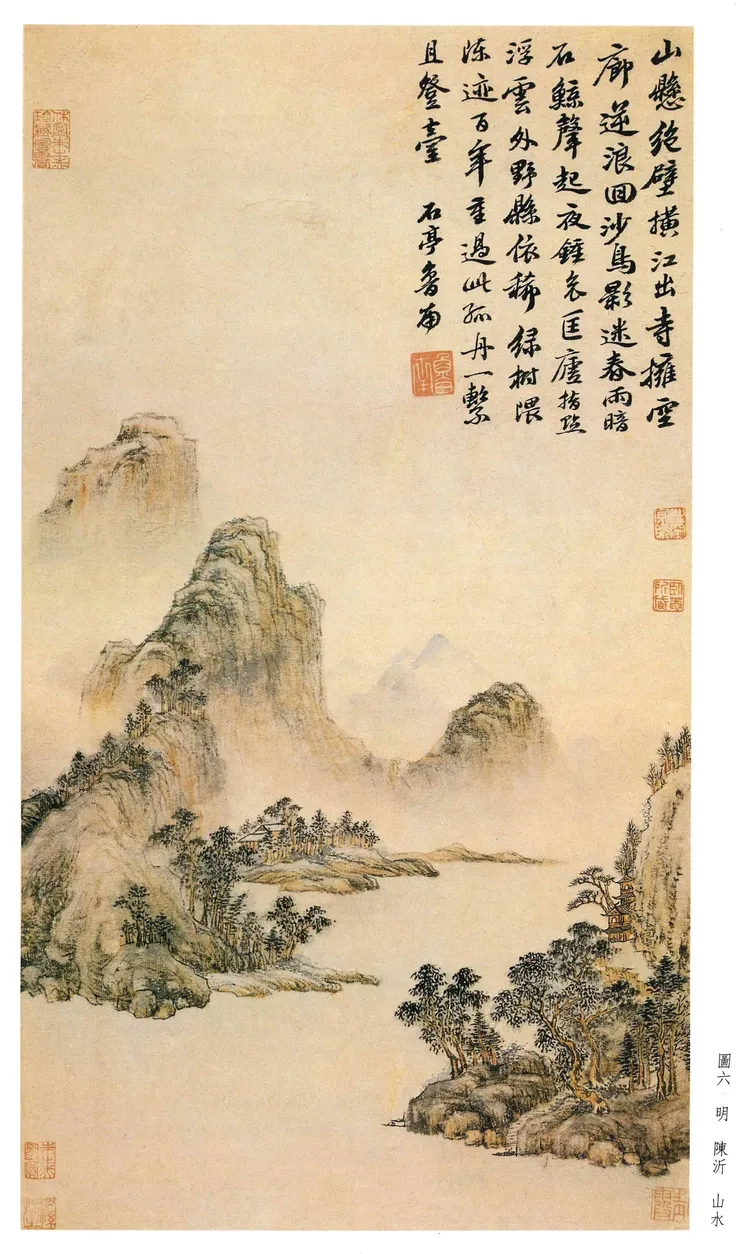 山懸絶壁撗江出寺擁空
廊逆浪回沙鳥影迷春雨暗
石鯨聲起夜鍾哀匡廬指點
浮雲外野縣依稀緑樹隈
陈迹百年重過此孤舟一繫
且登臺 石亭魯南
圖六 明 陳沂 山水